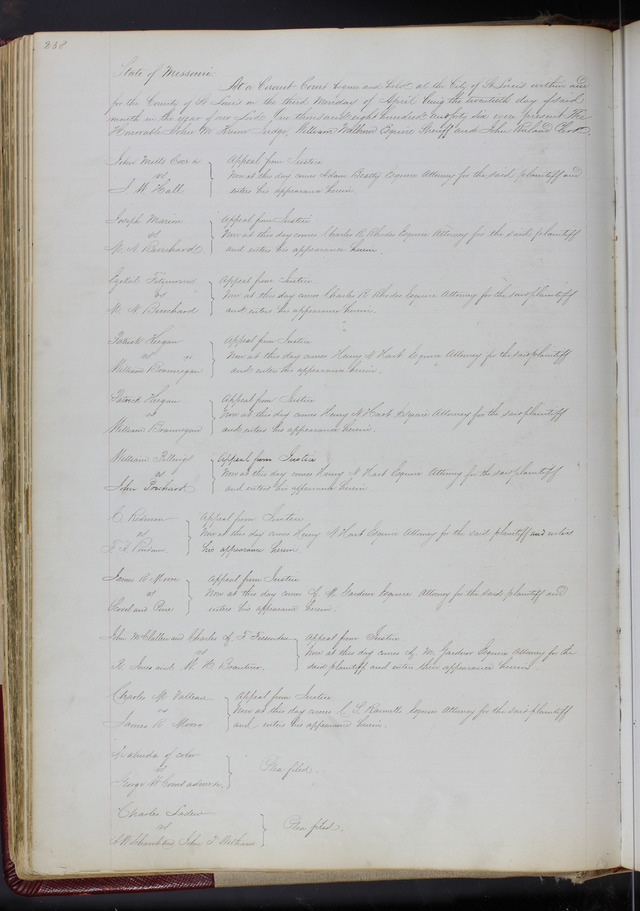 238
State of Missouri.
At a Circuit Court begun and held at the City of St Louis within and
for the County of St Louis on the third Monday of April being the twentieth day of said
month in the year of our Lord One thousand eight hundred and forty six were present The
Honorable John M. Krum Judge, William Milburn Esquire Sheriff and John Ruland Clerk
John Mills Appeal from Justice
vs Now at this day comes Adam Beatty Esquire Attorney for the said plaintiff and
J W Hall enters his appearance herein
Joseph Marion Appeal from Justice
vs Now at this day comes Charles R Rhodes Esquire Attorney for the said plaintiff
N. N Burchard and enters his appearance herein.
Ezekiel Appeal from Justice
vs Now at this day comes Charles R Rhodes Esquire Attorney for the said plaintiff
N. N Burchard and enters his appearance herein.
Patrick Hogan Appeal from Justice
vs Now at this day comes Henry N Hart Esquire Attorney for the said plaintiff
William Brannegan and enters his appearance herein.
Patrick Hogan Appeal from Justice
vs Now at this day comes Henry N Hart Esquire Attorney for the said plaintiff
William Brannegan and enters his appearance herein.
William Billings Appeal from Justice
vs Now at this day comes Henry N Hart Esquire Attorney for the said plaintiff
John and enters his appearance herein
C Redman Appeal from Justice
vs Now at this day comes Henry N Hart Esquire Attorney for the said plaintiff and enters
his appearance herein.
James R Moore Appeal from Justice
vs Now at this day comes J. M. Gardner Esquire Attorney for the said plaintiff and
enters his appearance herein.
John McClellan and Charles J. F. Fessenden Appeal from Justice
vs Now at this day comes J. M. Gardner Esquire Attorney for the
R. Jones and W. H. said plaintiff and enters his appearance herein
Charles M Valleau Appeal from Justice
vs Now at this day comes C. S. Esquire Attorney for the said plaintiff
James R Moore and enters his appearance herein.
Malinda of color
vs Plea filed.
George W Coons
Charles
vs Plea filed.
A W Chambers John